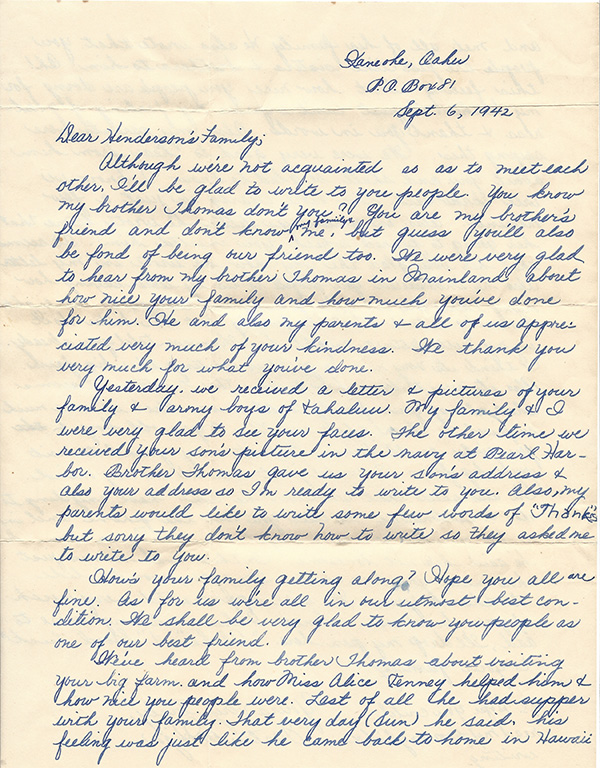 Kaneohe, Oahu
P.O. Box 81
Sept. 6, 1942
Dear Henderson's Family;
Although we're not acquainted so as to meet each
other, I'll be glad to write to you people. You know
my brother Thomas don't you?! You are my brother's
friend and don't know me, & family but guess you'll also
be fond of being our friend too. We were very glad
to hear from my brother Thomas in Mainland about
how nice your family and how much you've done
for him. He and also my parents & all of us appre-
ciated very much of your kindness. We thank you
very much for what you've done.
Yesterday we received a letter & pictures of your
family & army boys of Kahaluu. My family & I
were very glad to see your faces. The other time we
received your son's picture in the navy at Pearl Har-
bor. Brother Thomas gave us your son's address &
also your address so I'm ready to write to you. Also, my
parents would like to write some few words of "Thanks"
but sorry they don't know how to write so they asked me
to write to you.
How's your family getting along? Hope you all are
fine. As for us we're all in our utmost best con-
dition. We shall be very glad to know you people as
one of our best friend.
We've heard from brother Thomas about visiting
your big farm. and how Miss Alice Tenney helped him &
how nice you people were. Last of all the had supper
with your family. That very day (Sun) he said, his
feeling was just like he came back to home in Hawaii